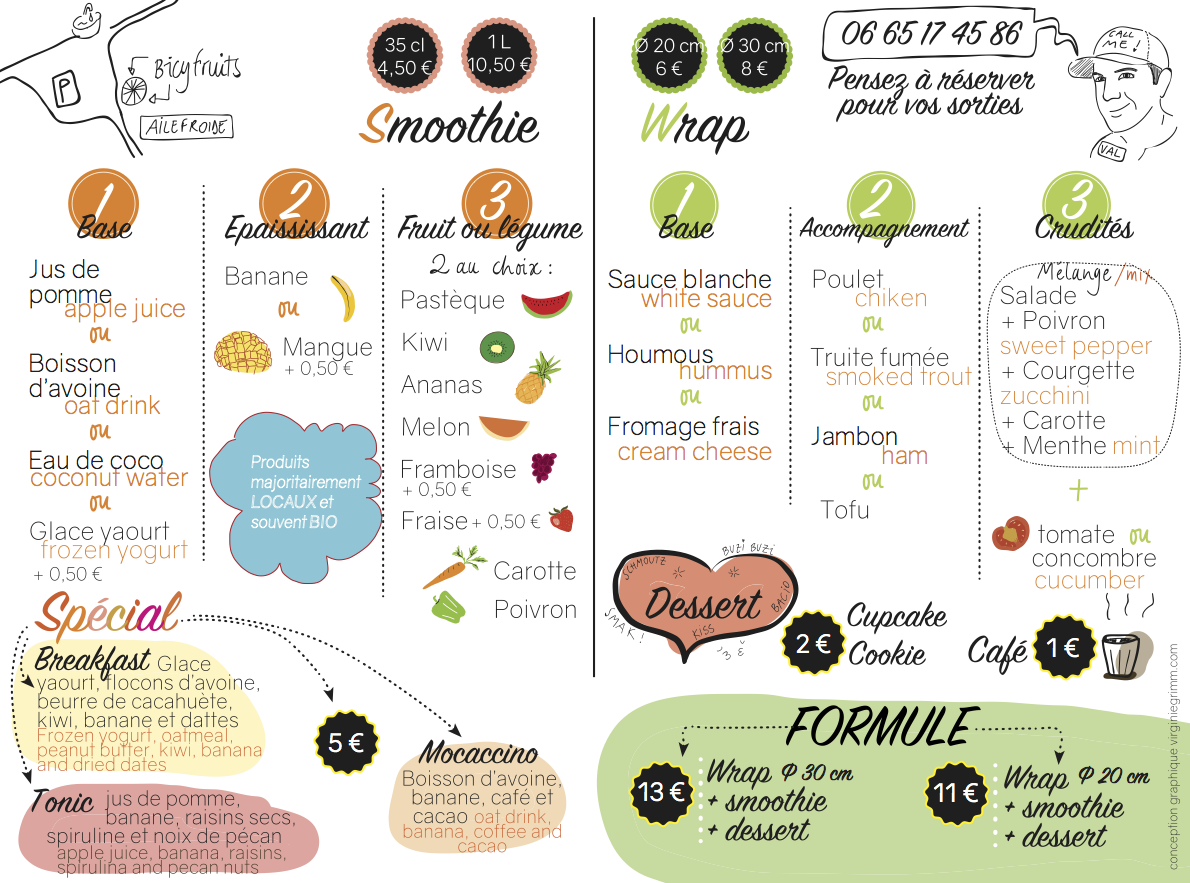 P
Bicyfruits
AILEFROIDE
35 cl
4,50 €
1 L
10,50 €
Smoothie
1
Base
Jus de
pomme
apple juice
ou
Boisson
d'avoine
oat drink
ou
Eau de coco
coconut water
ou
Glace yaourt
frozen yogurt
+ 0,50 €
2
Epaississant
Banane
ou
Mangue
+ 0,50 €
Produits
majoritairement
LOCAUX et
souvent BIO
3
Fruit ou légume
2 au choix :
Pastèque
Kiwi
Ananas
Melon
Framboise
+ 0,50 €
Fraise + 0,50 €
Carotte
Poivron
Spécial
Breakfast Glace
yaourt, flocons d'avoine,
beurre de cacahuète,
kiwi, banane et dattes
Frozen yogurt, oatmeal,
peanut butter, kiwi, banana
and dried dates
5 €
Tonic jus de pomme,
banane, raisins secs,
spiruline et noix de pécan
apple juice, banana, raisins,
spirulina and pecan nuts
Mocaccino
Boisson d'avoine,
banane, café et
cacao oat drink,
banana, coffee and
cacao
Ø 20 cm
6 €
Ø 30 cm
8 €
Wrap
06 65 17 45 86
Pensez à réserver
pour vos sorties
CALL
ME !
VAL
1
Base
Sauce blanche
white sauce
ou
Houmous
hummus
ou
Fromage frais
cream cheese
2
Accompagnement
Poulet
chiken
ou
Truite fumée
smoked trout
ou
Jambon
ham
ou
Tofu
3
Crudités
Mélange /mix
Salade
+ Poivron
sweet pepper
+ Courgette
zucchini
+ Carotte
+ Menthe mint
+
tomate ou
concombre
cucumber
SCHMOUTZ
BUZI BUZI
BACIO
KISS
SMAK !
Dessert
2 €
Cupcake
Cookie
Café
1 €
FORMULE
13 €
Wrap Ø 30 cm
+ smoothie
+ dessert
11 €
Wrap Ø 20 cm
+ smoothie
+ dessert
conception graphique virginiegrimm.com